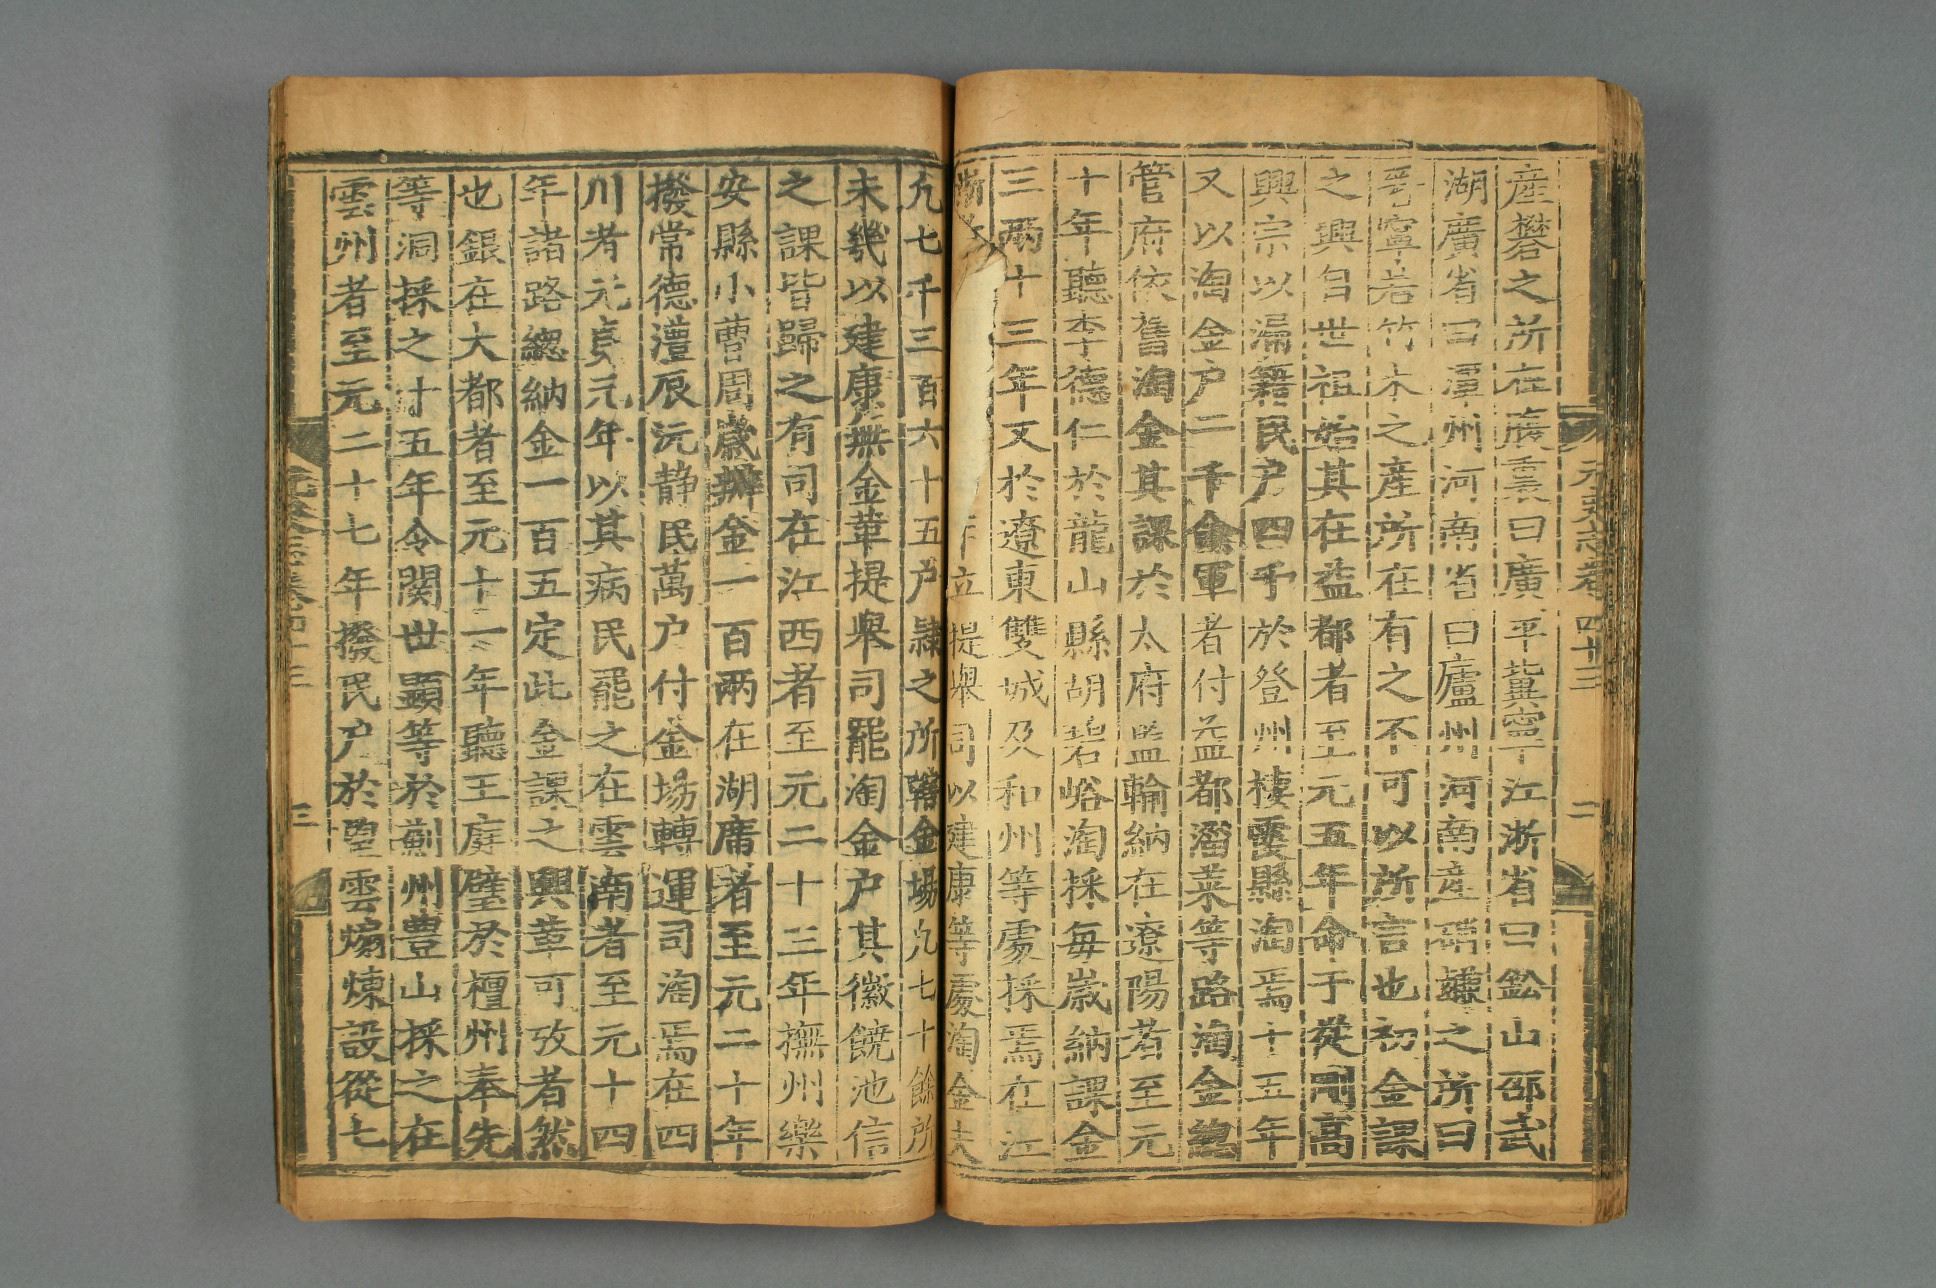 産礬之所在廣東曰廣平冀寧江浙省曰鉛山邵武
湖廣省曰潭州河南省曰廬州河南産硝鏀之所曰
晉寧若竹木之産所在有之不可以所言也初金課
之興自世祖始其在益都者至元五年命于從剛高
興宗以漏籍民户四千於登州棲霞縣淘焉十五年
又以淘金户二千僉軍者付益都淄萊等路淘金總
管府依舊淘金其課於太府監輸納在遼陽者至元
十年聽李德仁於龍山縣胡碧峪淘採每歲納課金
三兩十三年又於遼東雙城及和州等處採焉在江
浙 立提舉司以建康等處淘金夫
凡七千三百六十五户隸之所轄金場凡七十餘所
未幾以建康無金革提舉司罷淘金户其徽饒池信
之課皆歸之有司在江西者至元二十三年撫州樂
安縣小曹周歲辦金一百兩在湖廣者至元二十年
撥常德澧辰沅静民萬户付金場轉運司淘焉在四
川者元貞元年以其病民罷之在雲南者至元十四
年諸路總納金一百五定此金課之興革可攷者然
也銀在大都者至元十一年聽王庭璧於檀州奉先
等洞採之十五年令関世顯等於薊州豊山採之在
雲州者至元二十七年撥民户於望雲煽煉設從七
元史志卷四十三 二
元史志卷四十三 三